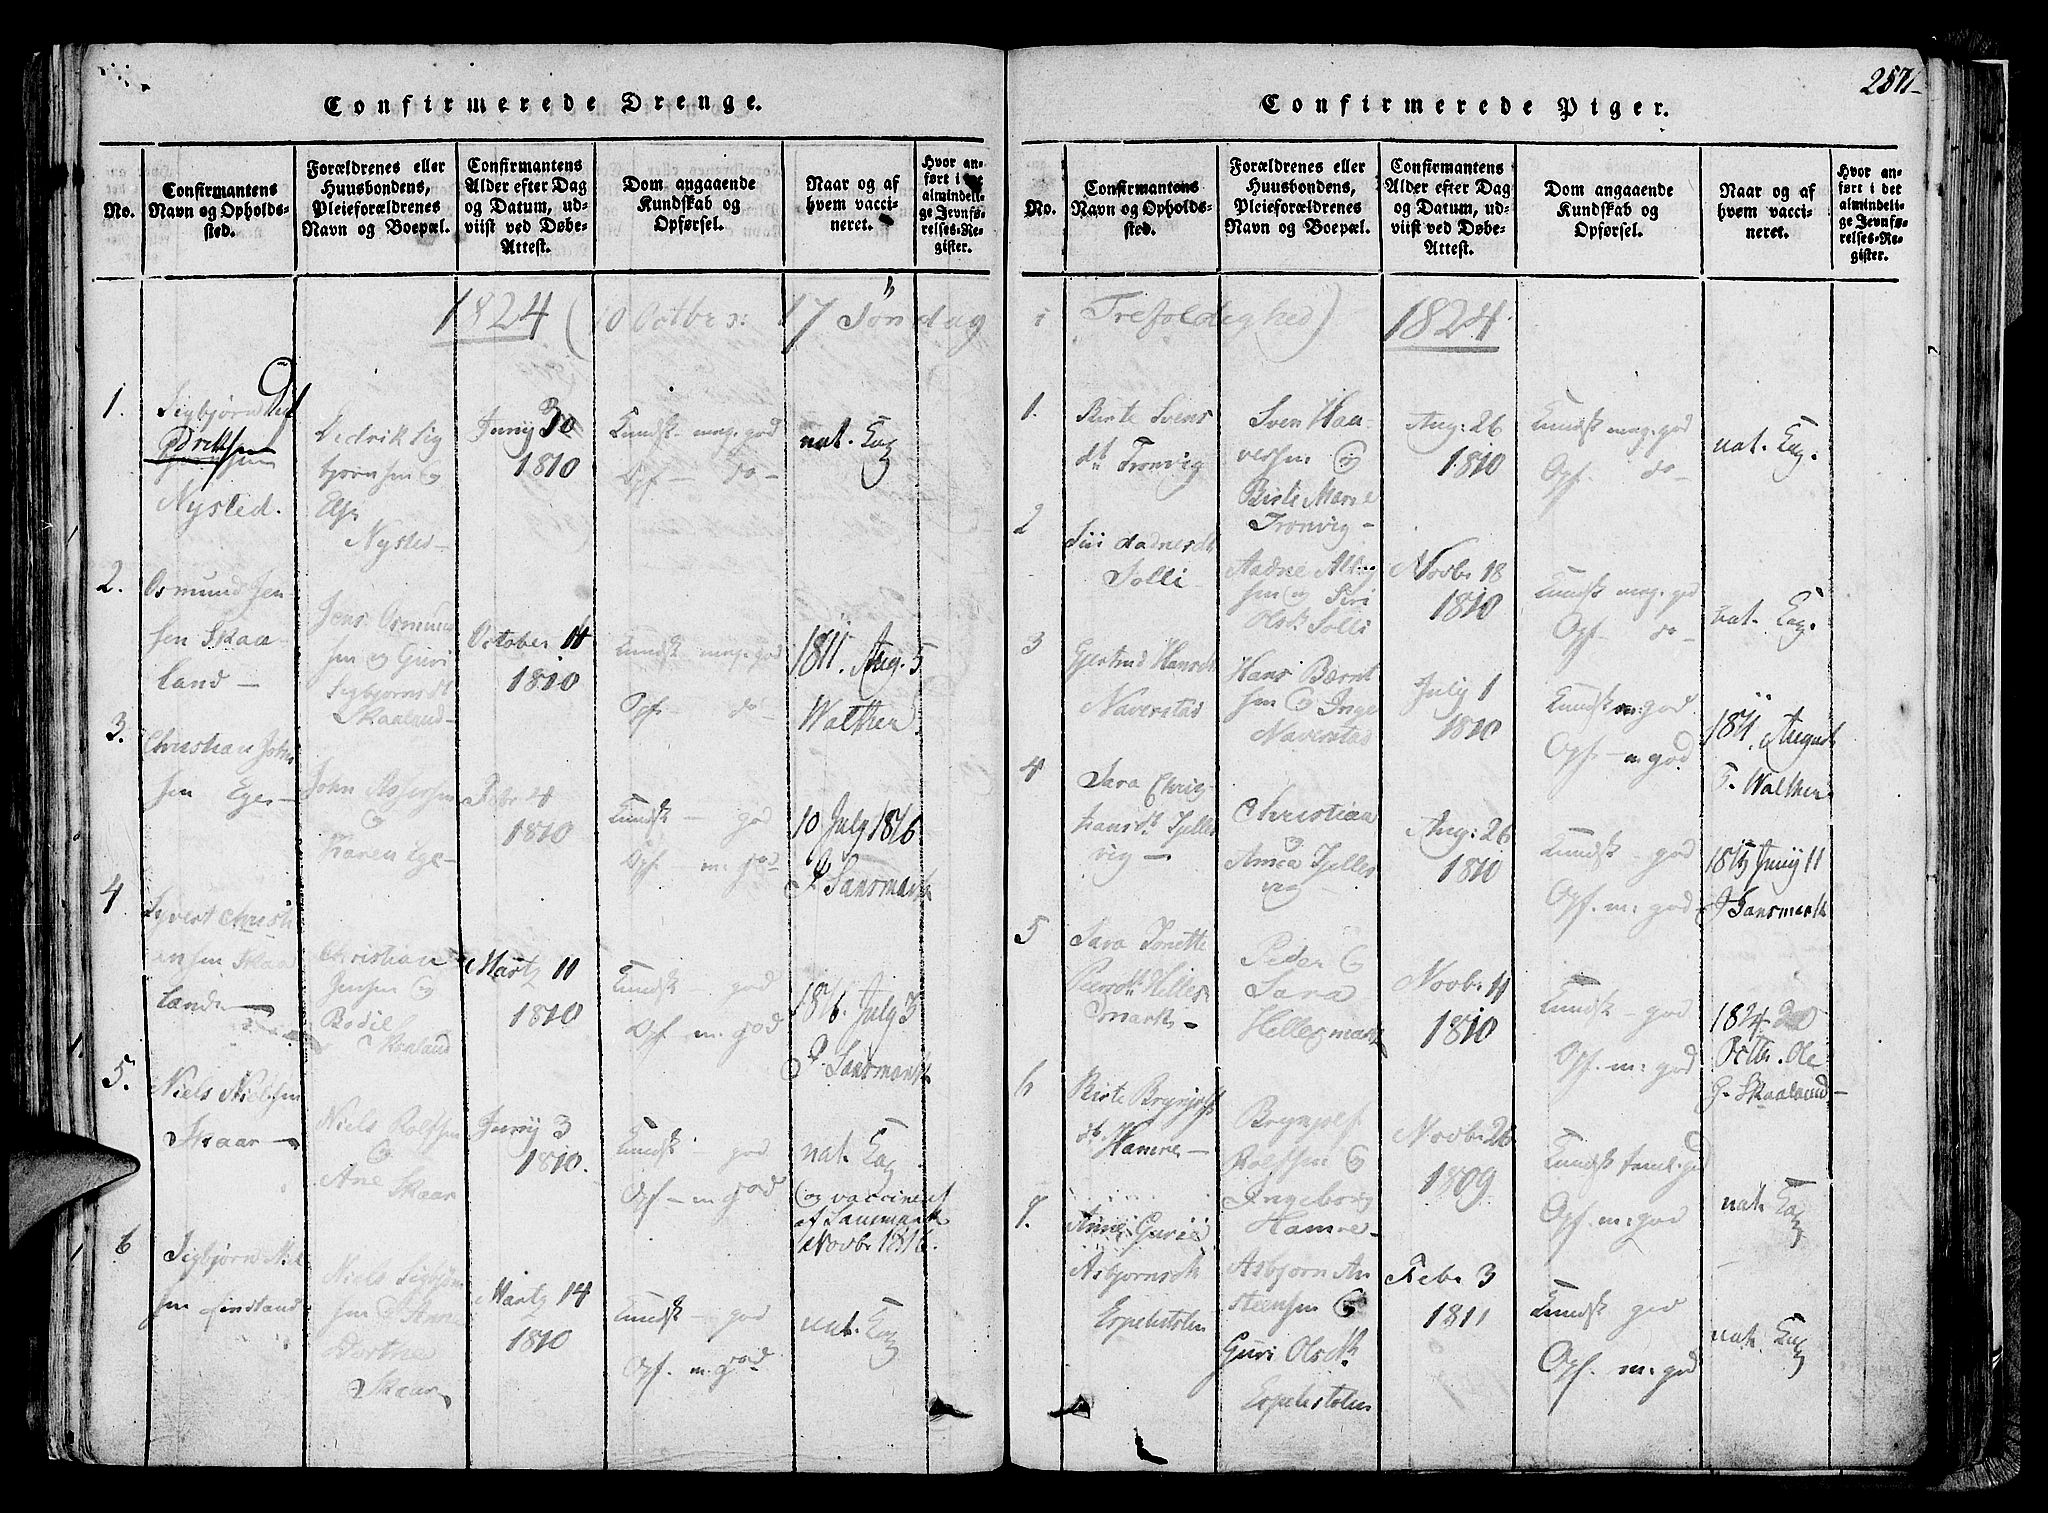 Confirmerede Drenge.
No.
Confirmantens
Navn og Opholds-
sted.
Forældrenes eller
Huusbondens,
Pleieforældrenes
Navn og Boepæl.
Confirmantens
Alder efter Dag
og Datum, ud-
viist ved Døbe-
Attest.
Dom angaaende
Kundskab og
Opførsel.
Naar og af
hvem vacci-
neret.
Hvor an-
ført i det
almindeli-
ge Jevnfø-
relses-Re-
gister.
1824 (10 Octbr 3: 17 Søndag
1.
Sigbjørn Did
drikssen
Nysted.
Dedrik Sig
bjørnsen og
Else
Nysted-
Juny 30
1810
Kundsk- meg. god
Opf- do-
nat. Kop
2.
Osmund Jen-
sen Skaa-
land-
Jens Osmund
sen og Guri
Sigbjørnsdt
Skaaland-
October 11
1810
Kundsk meg. god
Opf- do-
1811. Aug. 5
Walther
3.
Christian John
sen Ege-
John Assersen
og
Karen Ege-
Febr 4
1810
Kundsk- god
Opf- m. god
10 July 1816
P Sansmark
4
Syvert Christi
ansen Skaa
land-
Christian
Jensen og
Bodil
Skaaland
Martz 11
1810
Kundsk- god
Opf m. god
1816. July 3
P. Sansmark
5.
Niels Nielsen
Skaar-
Niels Rolfsen
og
Ane Skaar
Juny 3
1810.
Kundsk- god
Opf- m. god
nat. Kop
(og vaccineret
af Sansmark
Novbr 1816.
6
Sigbjørn Niel
sen Eindstand
Niels Sigbjørn
sen og Anne
Dorthe
Skaar
Martz 14
1810
Kundsk- god
Opf. m. god
nat. Kop
257
Confirmerede Piger.
No.
Confirmantens
Navn og Opholds-
sted.
Forældrenes eller
Huusbondens,
Pleieforældrenes
Navn og Boepæl.
Confirmantens
Alder efter Dag
og Datum, ud-
viist ved Døbe-
Attest.
Dom angaaende
Kundskab og
Opførsel.
Naar og af
hvem vacci-
neret.
Hvor an-
ført i det
almindeli-
ge Jevnfø-
relses-Re-
gister.
i Trefoldighed) 1824
1.
Birte Svens
dt Tronvig
Sven Haa-
versen og
Birte Marie
Tronvig-
Aug: 26
1810
Kundsk meg. god
Opf. do-
nat. Kop.
2
Siri Aadnesdt
Solli
Aadne
sen og Siri
Olsdt Solli
Novbr 18
1810
Kundsk meg. god
Opf- do-
nat. Kop.
3
Gjertrud Hansdt
Naverstad
Hans Bærnt
sen og Inge
Naverstad
July 1
1810
Kundsk m: god
Opf- m god
1811. August
F. Walther
4
Sara Chris
tiansdt Tjelles
vig-
Christian
og
Anna Tjelles
vig
Aug: 26
1810
Kundsk- god
Opf. m: god
Juny 11
P Sansmark
5
Sara Tonette
Pedersdt Helles
mark-
Peder og
Sara
Hellesmark
Novbr 11
1810
Kundsk- god
Opf. m: god
1824 20
Octbr. Ole
G. Skaaland-
6
Birte Brynjolfs
dt Hamre-
Brynjolf
Rolfsen og
Ingeborg
Hamre-
Novbr 26
1809
Kundsk teml. god
Opf. m: god
nat. Kop
7.
Anne Gurie
Asbjørnsdt
Espelistolen
Asbjørn An
steensen og
Guri Olsdt
Espelistolen
Febr 3
1811
Kundsk god
Opf. m: god
nat. Kop